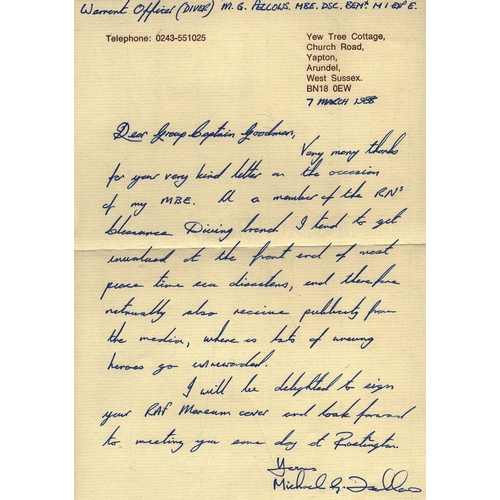 Warrant Officer (DIVER) M. G. FELLOWS. MBE. DSC. BEM*. M I EXP E.
Telephone: 0243-551025
Yew Tree Cottage,
Church Road,
Yapton,
Arundel,
West Sussex.
BN18 0EW
7 MARCH 1988
Dear Group Captain Goodman,
Very many thanks
for your very kind letter on the occasion
of my MBE. As a member of the RN's
Clearance Diving branch I tend to get
involved at the front end of most
peace time sea disasters, and therefore
naturally also receive publicity from
the media, where as lots of unsung
heroes go unrewarded.
I will be delighted to sign
your RAF Museum cover and look forward
to meeting you some day at Rustington.
Yours
Michael G. Fellows